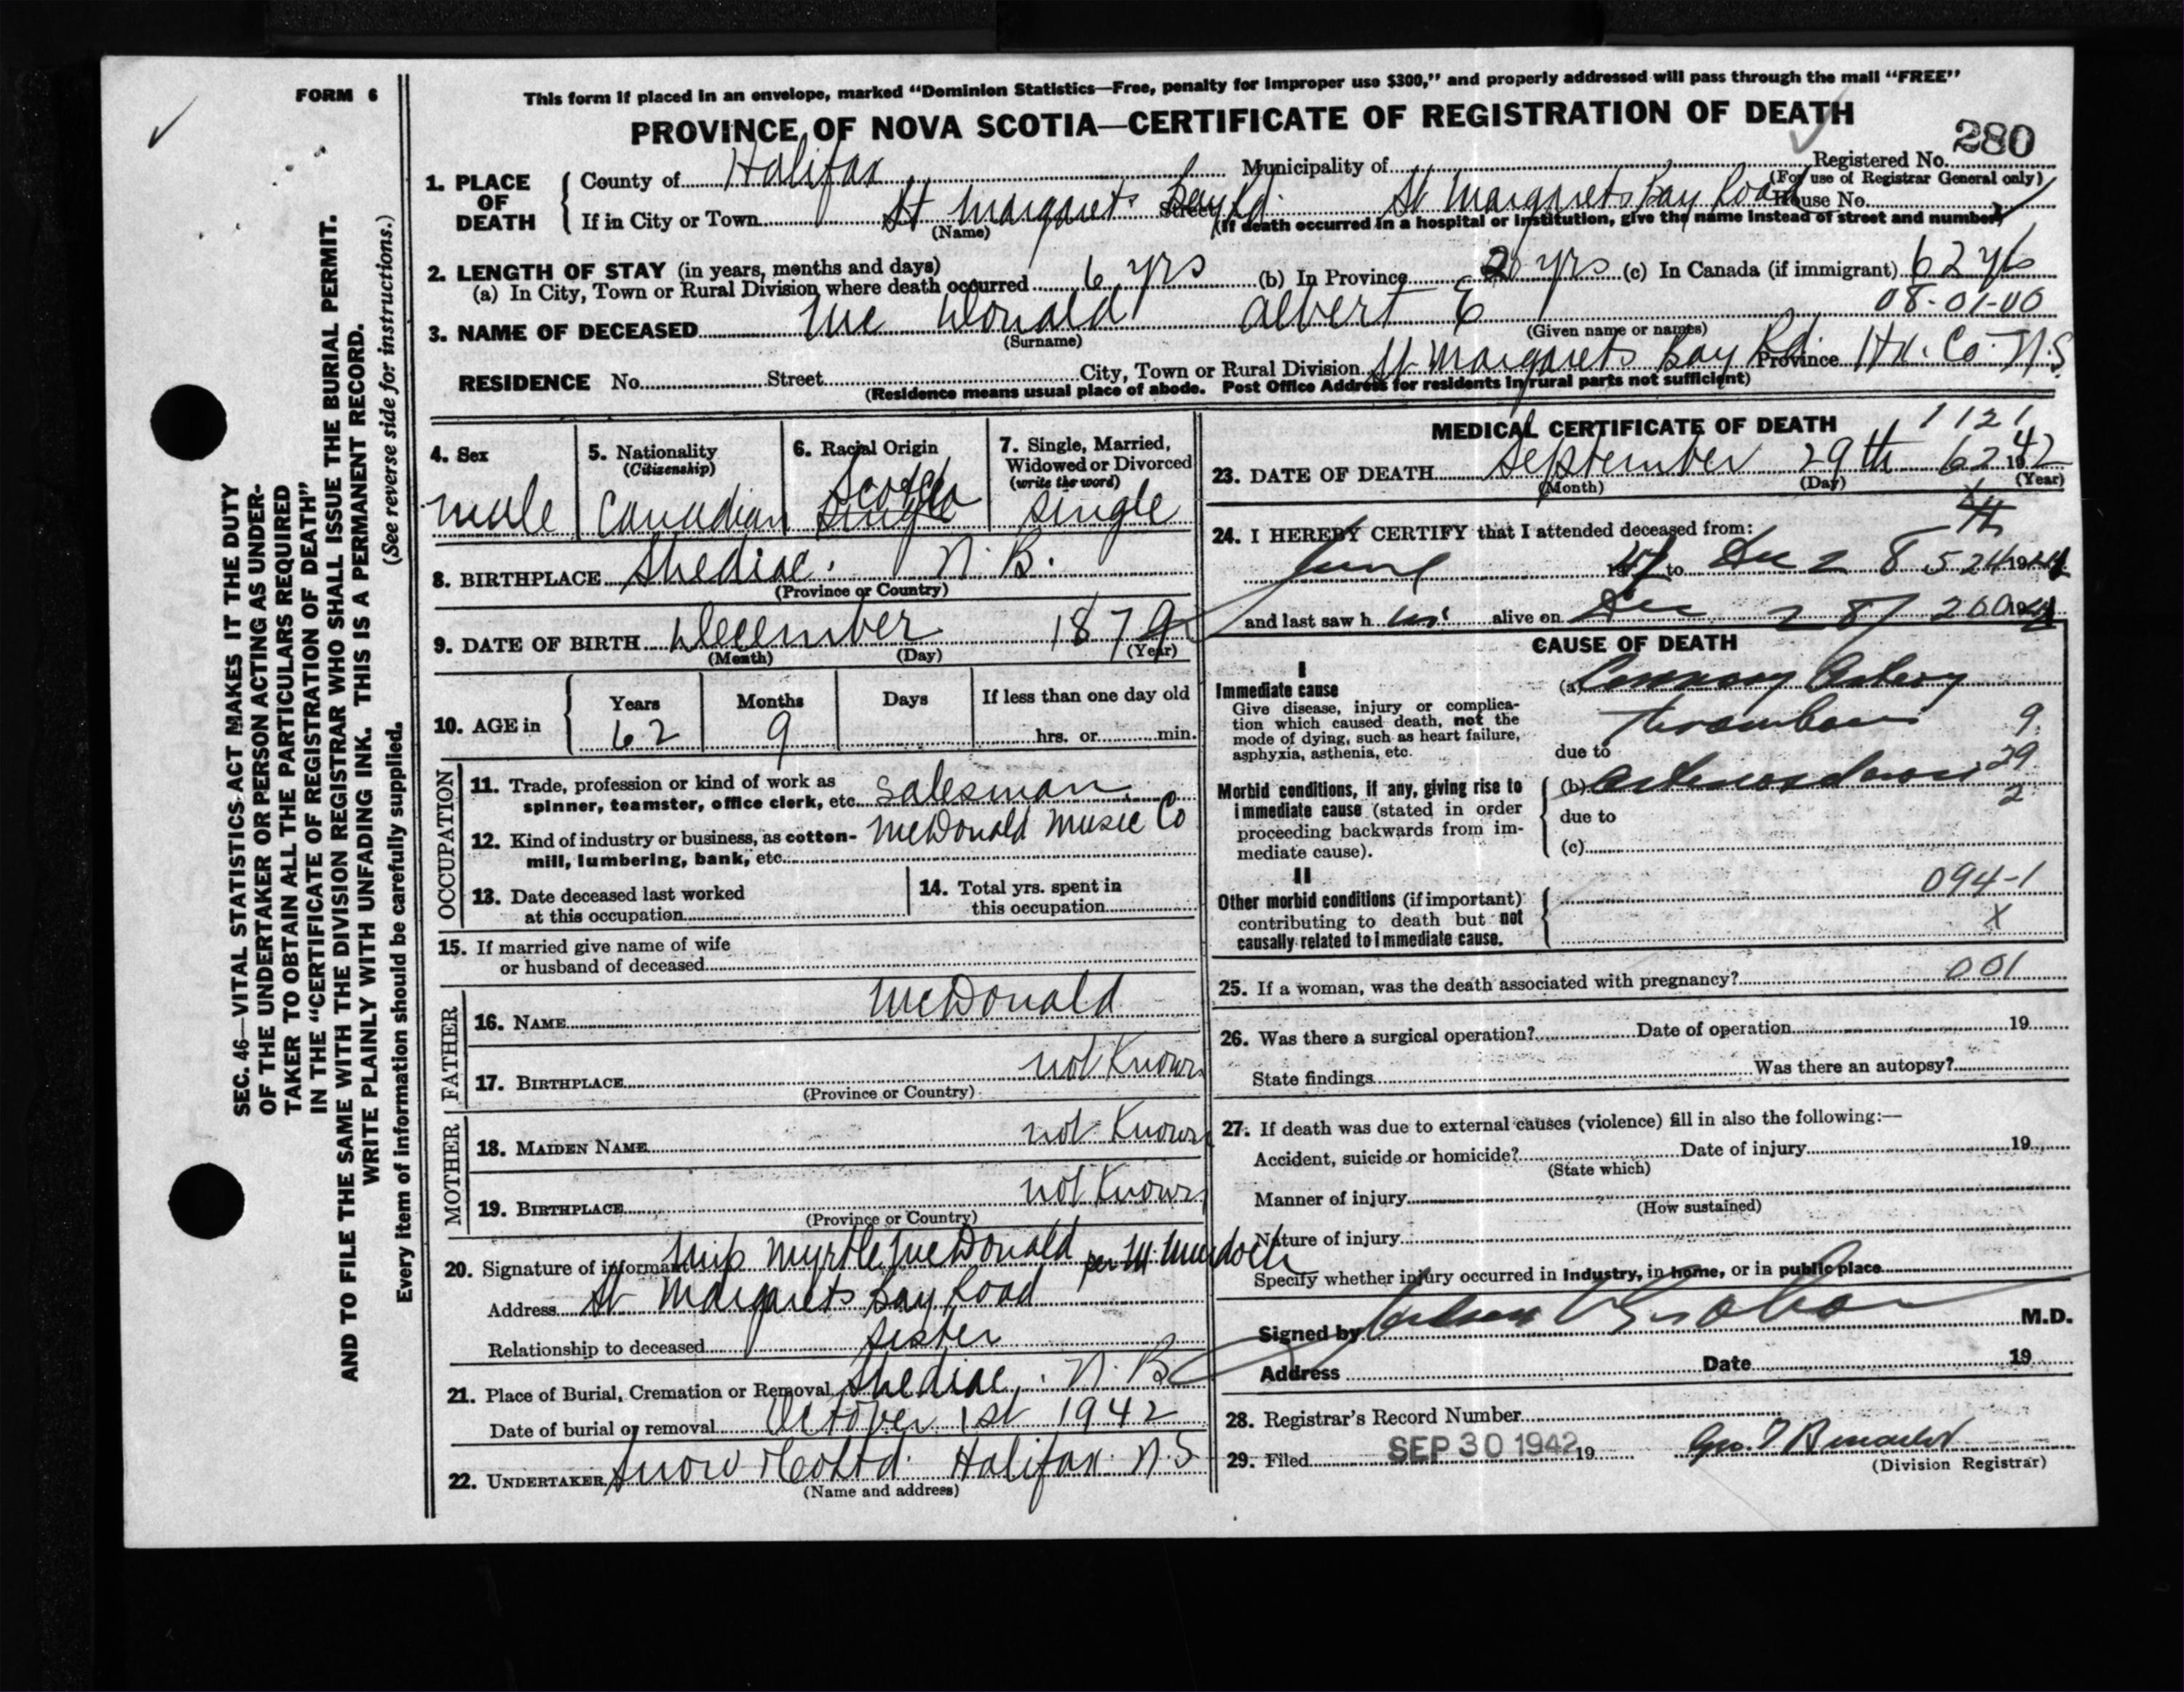 FORM 6
This form if placed in an envelope, marked "Dominion Statistics—Free, penalty for improper use $300," and properly addressed will pass through the mail "FREE"
PROVINCE OF NOVA SCOTIA—CERTIFICATE OF REGISTRATION OF DEATH
280
SEC. 46—VITAL STATISTICS ACT MAKES IT THE DUTY
OF THE UNDERTAKER OR PERSON ACTING AS UNDER-
TAKER TO OBTAIN ALL THE PARTICULARS REQUIRED
IN THE "CERTIFICATE OF REGISTRATION OF DEATH"
AND TO FILE THE SAME WITH THE DIVISION REGISTRAR WHO SHALL ISSUE THE BURIAL PERMIT.
WRITE PLAINLY WITH UNFADING INK. THIS IS A PERMANENT RECORD.
(See reverse side for instructions.)
Every item of information should be carefully supplied.
1. PLACE OF DEATH
County of Halifax Municipality of Registered No.
(For use of Registrar General only)
If in City or Town St Margarets Bay Rd. Street St Margarets Bay Road House No.
(Name) (If death occurred in a hospital or institution, give the name instead of street and number)
2. LENGTH OF STAY (in years, months and days)
(a) In City, Town or Rural Division where death occurred 6 yrs (b) In Province 20 yrs (c) In Canada (if immigrant) 62 yrs
08-01-00
3. NAME OF DECEASED McDonald Albert E
(Surname) (Given name or names)
RESIDENCE No. Street City, Town or Rural Division St Margarets Bay Rd. Province Hx. Co. N.S
(Residence means usual place of abode. Post Office Address for residents in rural parts not sufficient)
4. Sex
male
5. Nationality
(Citizenship)
Canadian
6. Racial Origin
Scotch
7. Single, Married,
Widowed or Divorced
(write the word)
single
8. BIRTHPLACE Shediac. N. B.
(Province or Country)
9. DATE OF BIRTH December 1879
(Month) (Day) (Year)
10. AGE in
Years Months Days If less than one day old
62 9 hrs. or min.
OCCUPATION
11. Trade, profession or kind of work as
spinner, teamster, office clerk, etc. Salesman
12. Kind of industry or business, as cotton- McDonald Music Co
mill, lumbering, bank, etc.
13. Date deceased last worked
at this occupation
14. Total yrs. spent in
this occupation
15. If married give name of wife
or husband of deceased
FATHER
16. NAME McDonald
17. BIRTHPLACE not Known
(Province or Country)
MOTHER
18. MAIDEN NAME not Known
19. BIRTHPLACE not Known
(Province or Country)
20. Signature of informant Miss Myrtle McDonald per M. Murdoch
Address St Margarets Bay Road
Relationship to deceased Sister
21. Place of Burial, Cremation or Removal Shediac, N. B
Date of burial or removal October 1st 1942
22. UNDERTAKER Snow & Co Ltd. Halifax. N.S
(Name and address)
MEDICAL CERTIFICATE OF DEATH
1121
23. DATE OF DEATH September 29th 62 1942
(Month) (Day) (Year)
24. I HEREBY CERTIFY that I attended deceased from:
June to 28 524 19
and last saw h im alive on 28 200 19
CAUSE OF DEATH
I
Immediate cause
Give disease, injury or complica-
tion which caused death, not the
mode of dying, such as heart failure,
asphyxia, asthenia, etc.
(a) Coronary Artery
Thrombosis 9
due to
29
Morbid conditions, if any, giving rise to
immediate cause (stated in order
proceeding backwards from im-
mediate cause).
(b) Arteriosclerosis
2
due to
(c)
II
Other morbid conditions (if important)
contributing to death but not
causally related to immediate cause.
094-1
X
25. If a woman, was the death associated with pregnancy? 001
26. Was there a surgical operation? Date of operation 19
State findings Was there an autopsy?
27. If death was due to external causes (violence) fill in also the following:—
Accident, suicide or homicide? Date of injury 19
(State which)
Manner of injury
(How sustained)
Nature of injury
Specify whether injury occurred in industry, in home, or in public place
Signed by M.D.
Address Date 19
28. Registrar's Record Number
29. Filed SEP 30 1942 19
(Division Registrar)